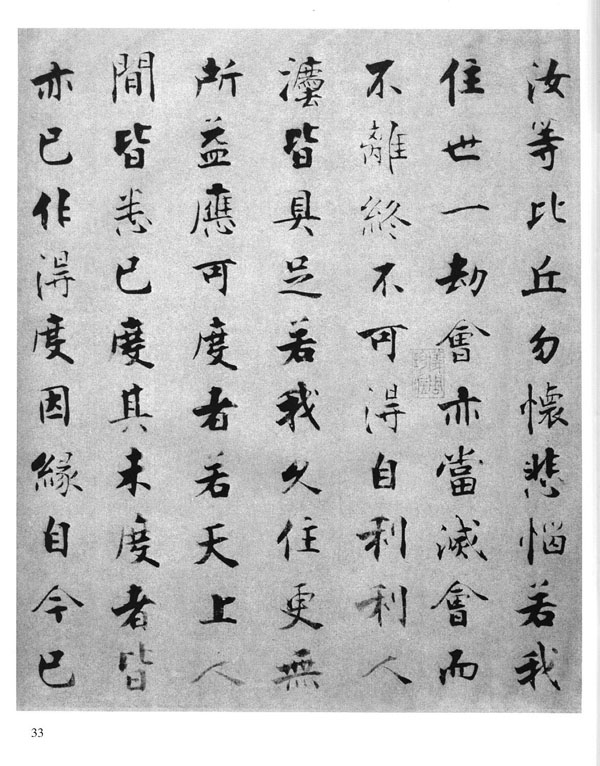 汝等比丘勿懷悲惱若我
住世一劫會亦當滅會而
不離終不可得自利利人
灋皆具足若我久住更無
所益應可度者若天上人
間皆悉已度其未度者皆
亦已作得度因緣自今已
33